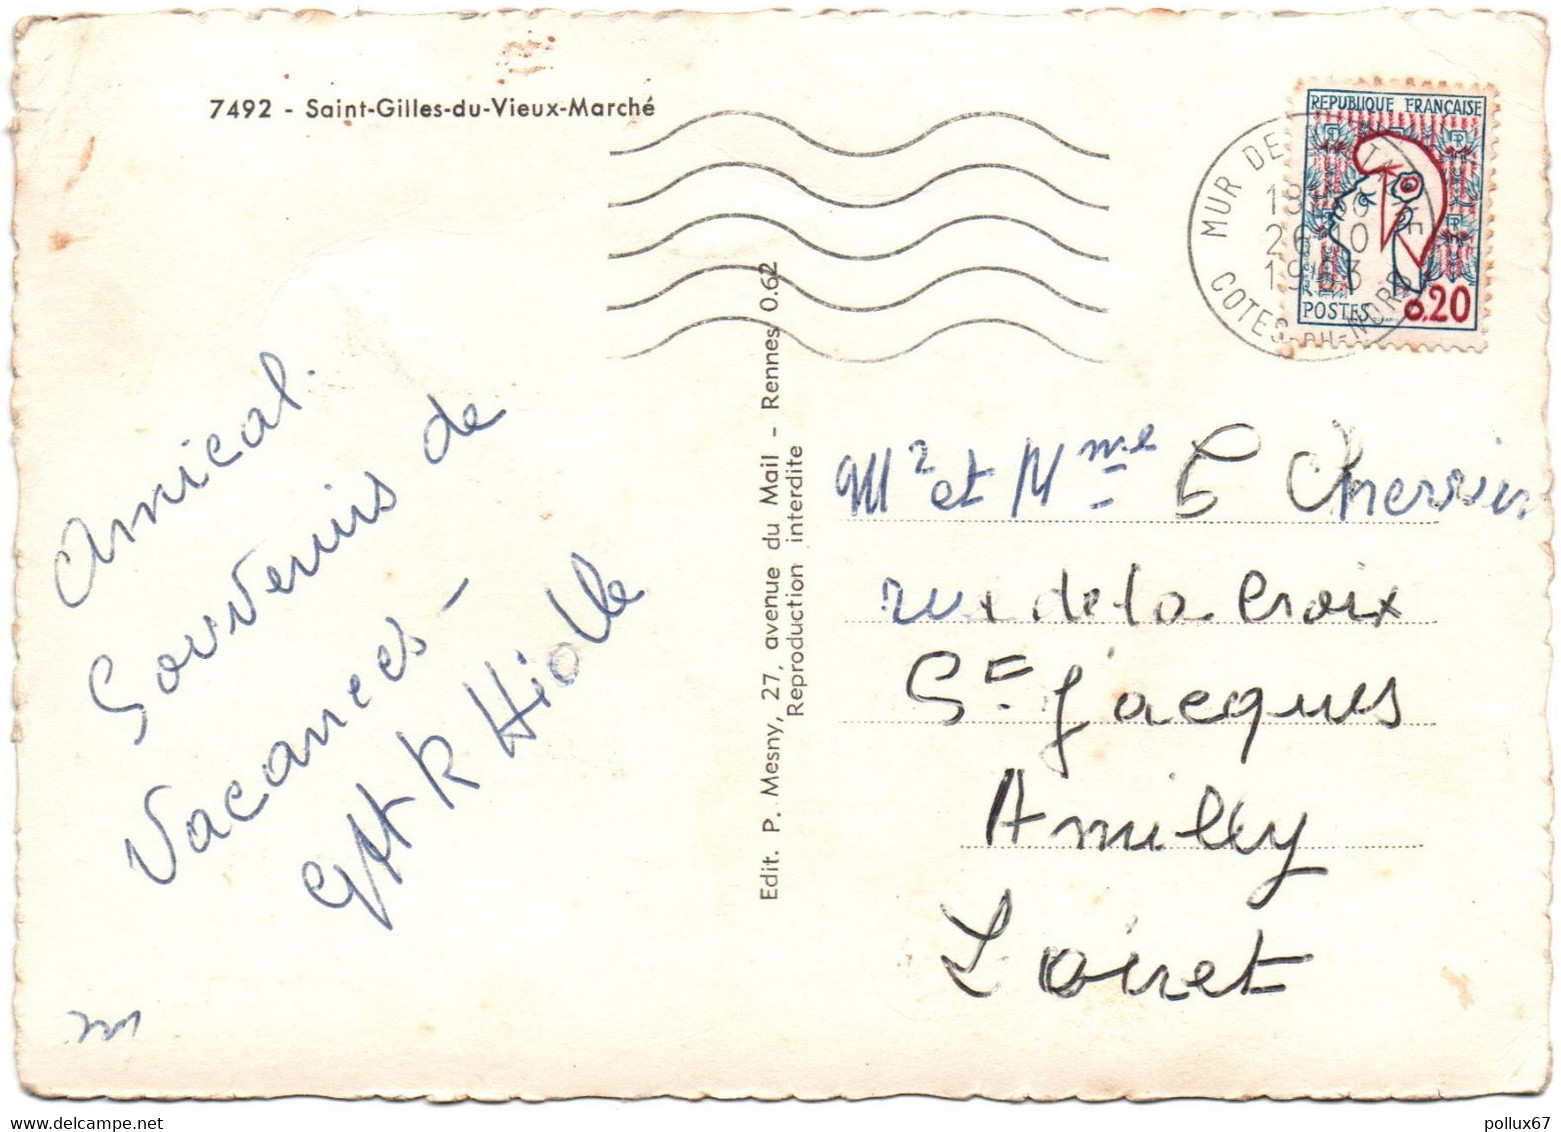 7492 - Saint-Gilles-du-Vieux-Marché
REPUBLIQUE FRANÇAISE
POSTES 0.20
MUR DE
26-10
1963
COTES-DU-NORD
Amical.
Souvenirs de
Vacances -
Hiolle
Edit. P. Mesny, 27, avenue du Mail - Rennes 0.62
Reproduction interdite
Mr et Mme
rue de la Croix
St Jacques
Amilly
Loiret
www.delcampe.net
pollux67